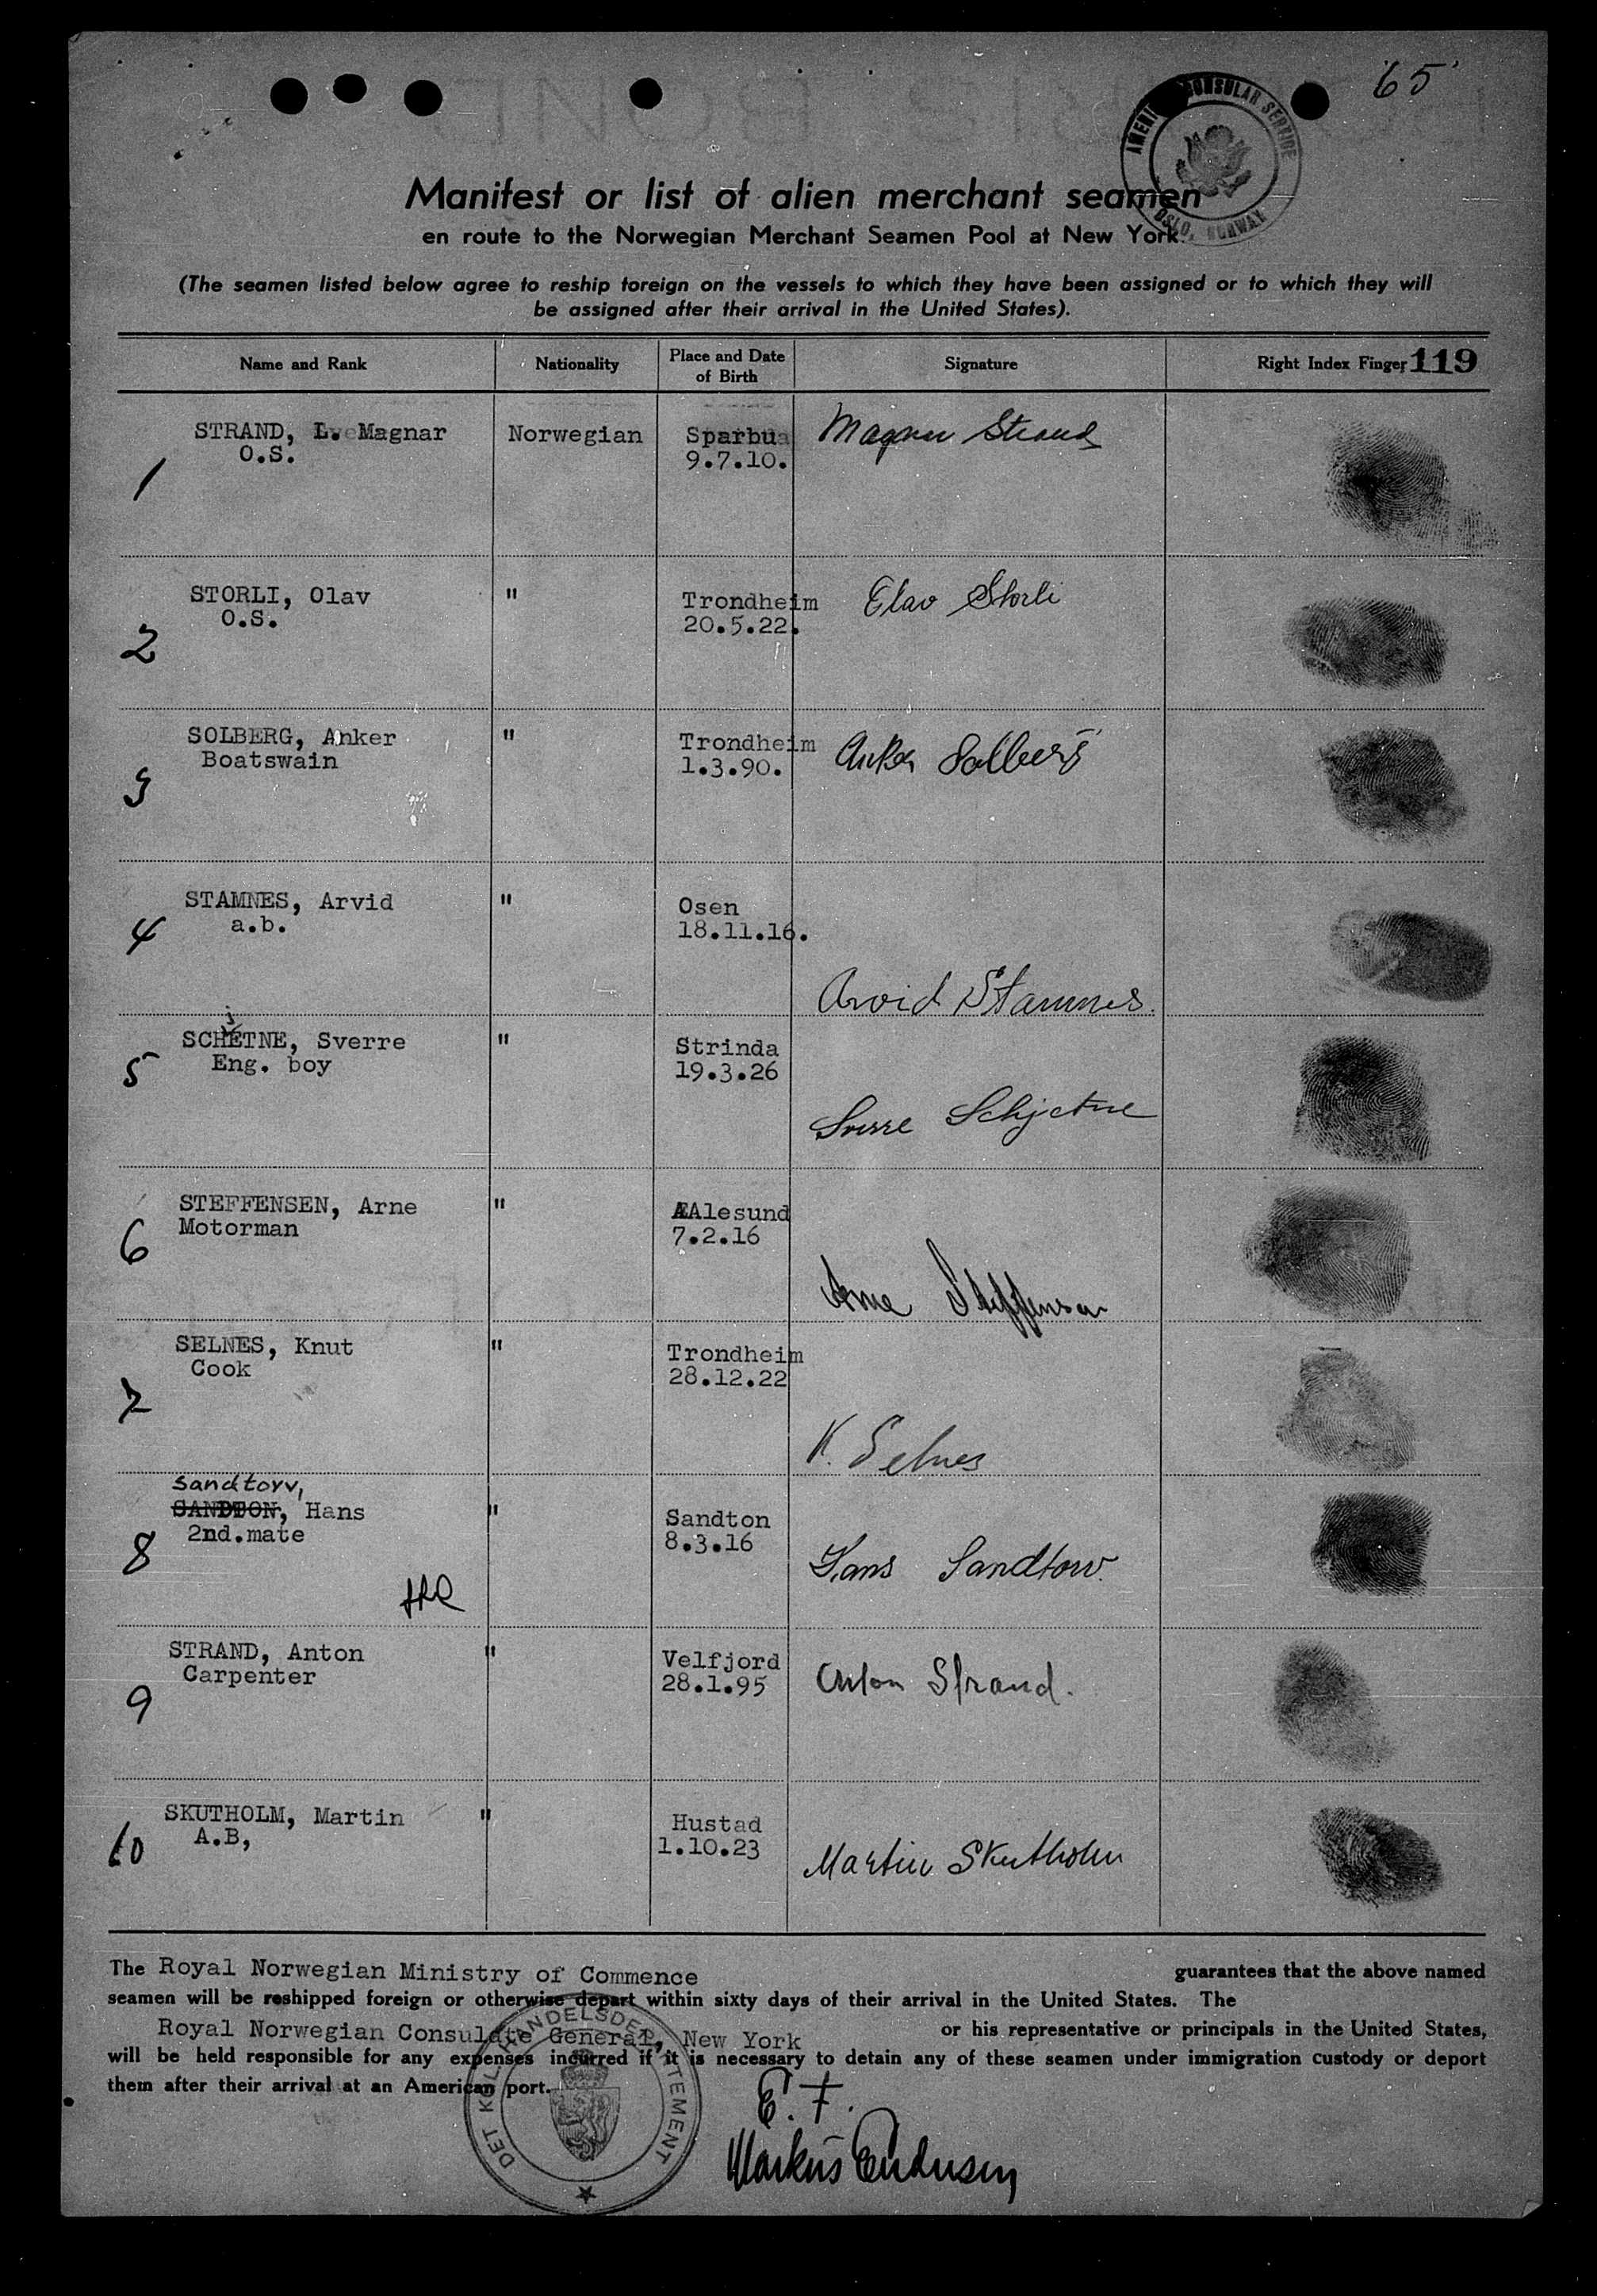 65
AMERICAN CONSULAR SERVICE
OSLO, NORWAY
Manifest or list of alien merchant seamen
en route to the Norwegian Merchant Seamen Pool at New York.
(The seamen listed below agree to reship foreign on the vessels to which they have been assigned or to which they will
be assigned after their arrival in the United States).
Name and Rank Nationality Place and Date of Birth Signature Right Index Finger 119
1 STRAND, L. Magnar Norwegian Sparbu Magnar Strand
O.S. 9.7.10.
2 STORLI, Olav " Trondheim Olav Storli
O.S. 20.5.22.
3 SOLBERG, Anker " Trondheim Anker Solberg
Boatswain 1.3.90.
4 STAMNES, Arvid " Osen
a.b. 18.11.16.
Arvid Stamnes.
j
5 SCHETNE, Sverre " Strinda
Eng. boy 19.3.26
Sverre Schjetne
6 STEFFENSEN, Arne " Aalesund
Motorman 7.2.16
Arne Steffensen
7 SELNES, Knut " Trondheim
Cook 28.12.22
K. Selnes
Sandtorv,
8 SANDTON, Hans " Sandton
2nd.mate 8.3.16
Hans Sandtorv.
9 STRAND, Anton " Velfjord
Carpenter 28.1.95 Anton Strand.
10 SKUTHOLM, Martin " Hustad
A.B, 1.10.23 Martin Skutholm
The Royal Norwegian Ministry of Commence guarantees that the above named
seamen will be reshipped foreign or otherwise depart within sixty days of their arrival in the United States. The
Royal Norwegian Consulate General, New York or his representative or principals in the United States,
will be held responsible for any expenses incurred if it is necessary to detain any of these seamen under immigration custody or deport
them after their arrival at an American port.
DET KGL. HANDELSDEPARTEMENT
E. F.
Markus Endresen